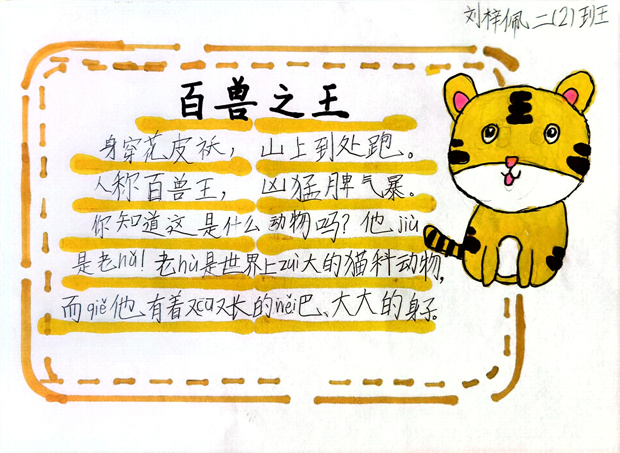 刘梓佩 二(2)班
百兽之王
身穿花皮袄，山上到处跑。
人称百兽王，凶猛脾气暴。
你知道这是什么动物吗？他jiù
是老hǔ！老hǔ是世界上zuì大的猫科动物，
而qiě他有着又cū又长的wěi巴、大大的身子。